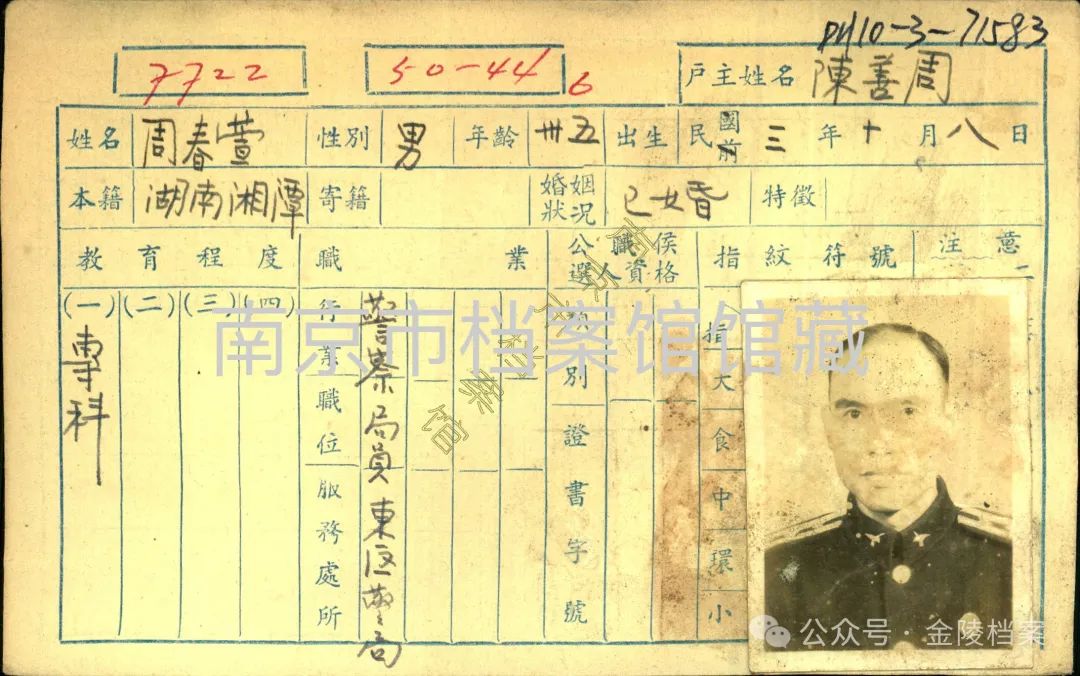 PH10-3-71583
7722
50-44
6
戶主姓名 陳善周
姓名 周春萱 性別 男 年齡 卅五 出生 民國前 三 年 十 月 八 日
本籍 湖南湘潭 寄籍 婚姻狀況 已婚 特徵
教育程度 職業 公職候選人資格 指紋符號 注意
(一) (二) (三) (四)
專科
行業職位 警察局員
服務處所 東區警局
類別
證書字號
指 大 食 中 環 小
南京市档案馆馆藏
南京市档案馆
公众号·金陵档案